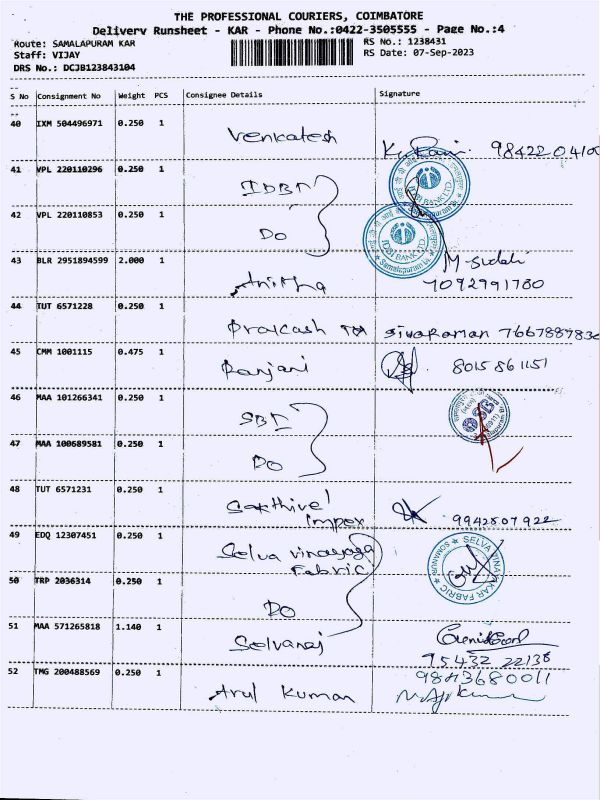 THE PROFESSIONAL COURIERS, COIMBATORE
Delivery Runsheet - KAR - Phone No.:0422-3505555 - Page No.:4
Route: SAMALAPURAM KAR RS No.: 1238431
Staff: VIJAY RS Date: 07-Sep-2023
DRS No.: DCJB123843104
S No Consignment No Weight PCS Consignee Details Signature
40 IXM 504496971 0.250 1 Venkatesh
41 VPL 220110296 0.250 1 IDBI
IDBI BANK LTD.
42 VPL 220110853 0.250 1 DO
IDBI BANK LTD.
Samalapuram
43 BLR 2951894599 2.000 1 Anitha
7092991780
44 TUT 6571228 0.250 1 sivaraman
45 CMM 1001115 0.475 1 Ranjani 8015861151
46 MAA 101266341 0.250 1 SBI
47 MAA 100689581 0.250 1 DO
48 TUT 6571231 0.250 1 Sakthivel
Impex 9942807922
49 EDQ 12307451 0.250 1 Selva vinayaga
Fabric
SELVA VINAYAKAR FABRIC
SOMANUR
50 TRP 2036314 0.250 1 DO
51 MAA 571265818 1.140 1 Selvaraj
95432 22138
52 TMG 200488569 0.250 1 Arul Kumar 9843680011